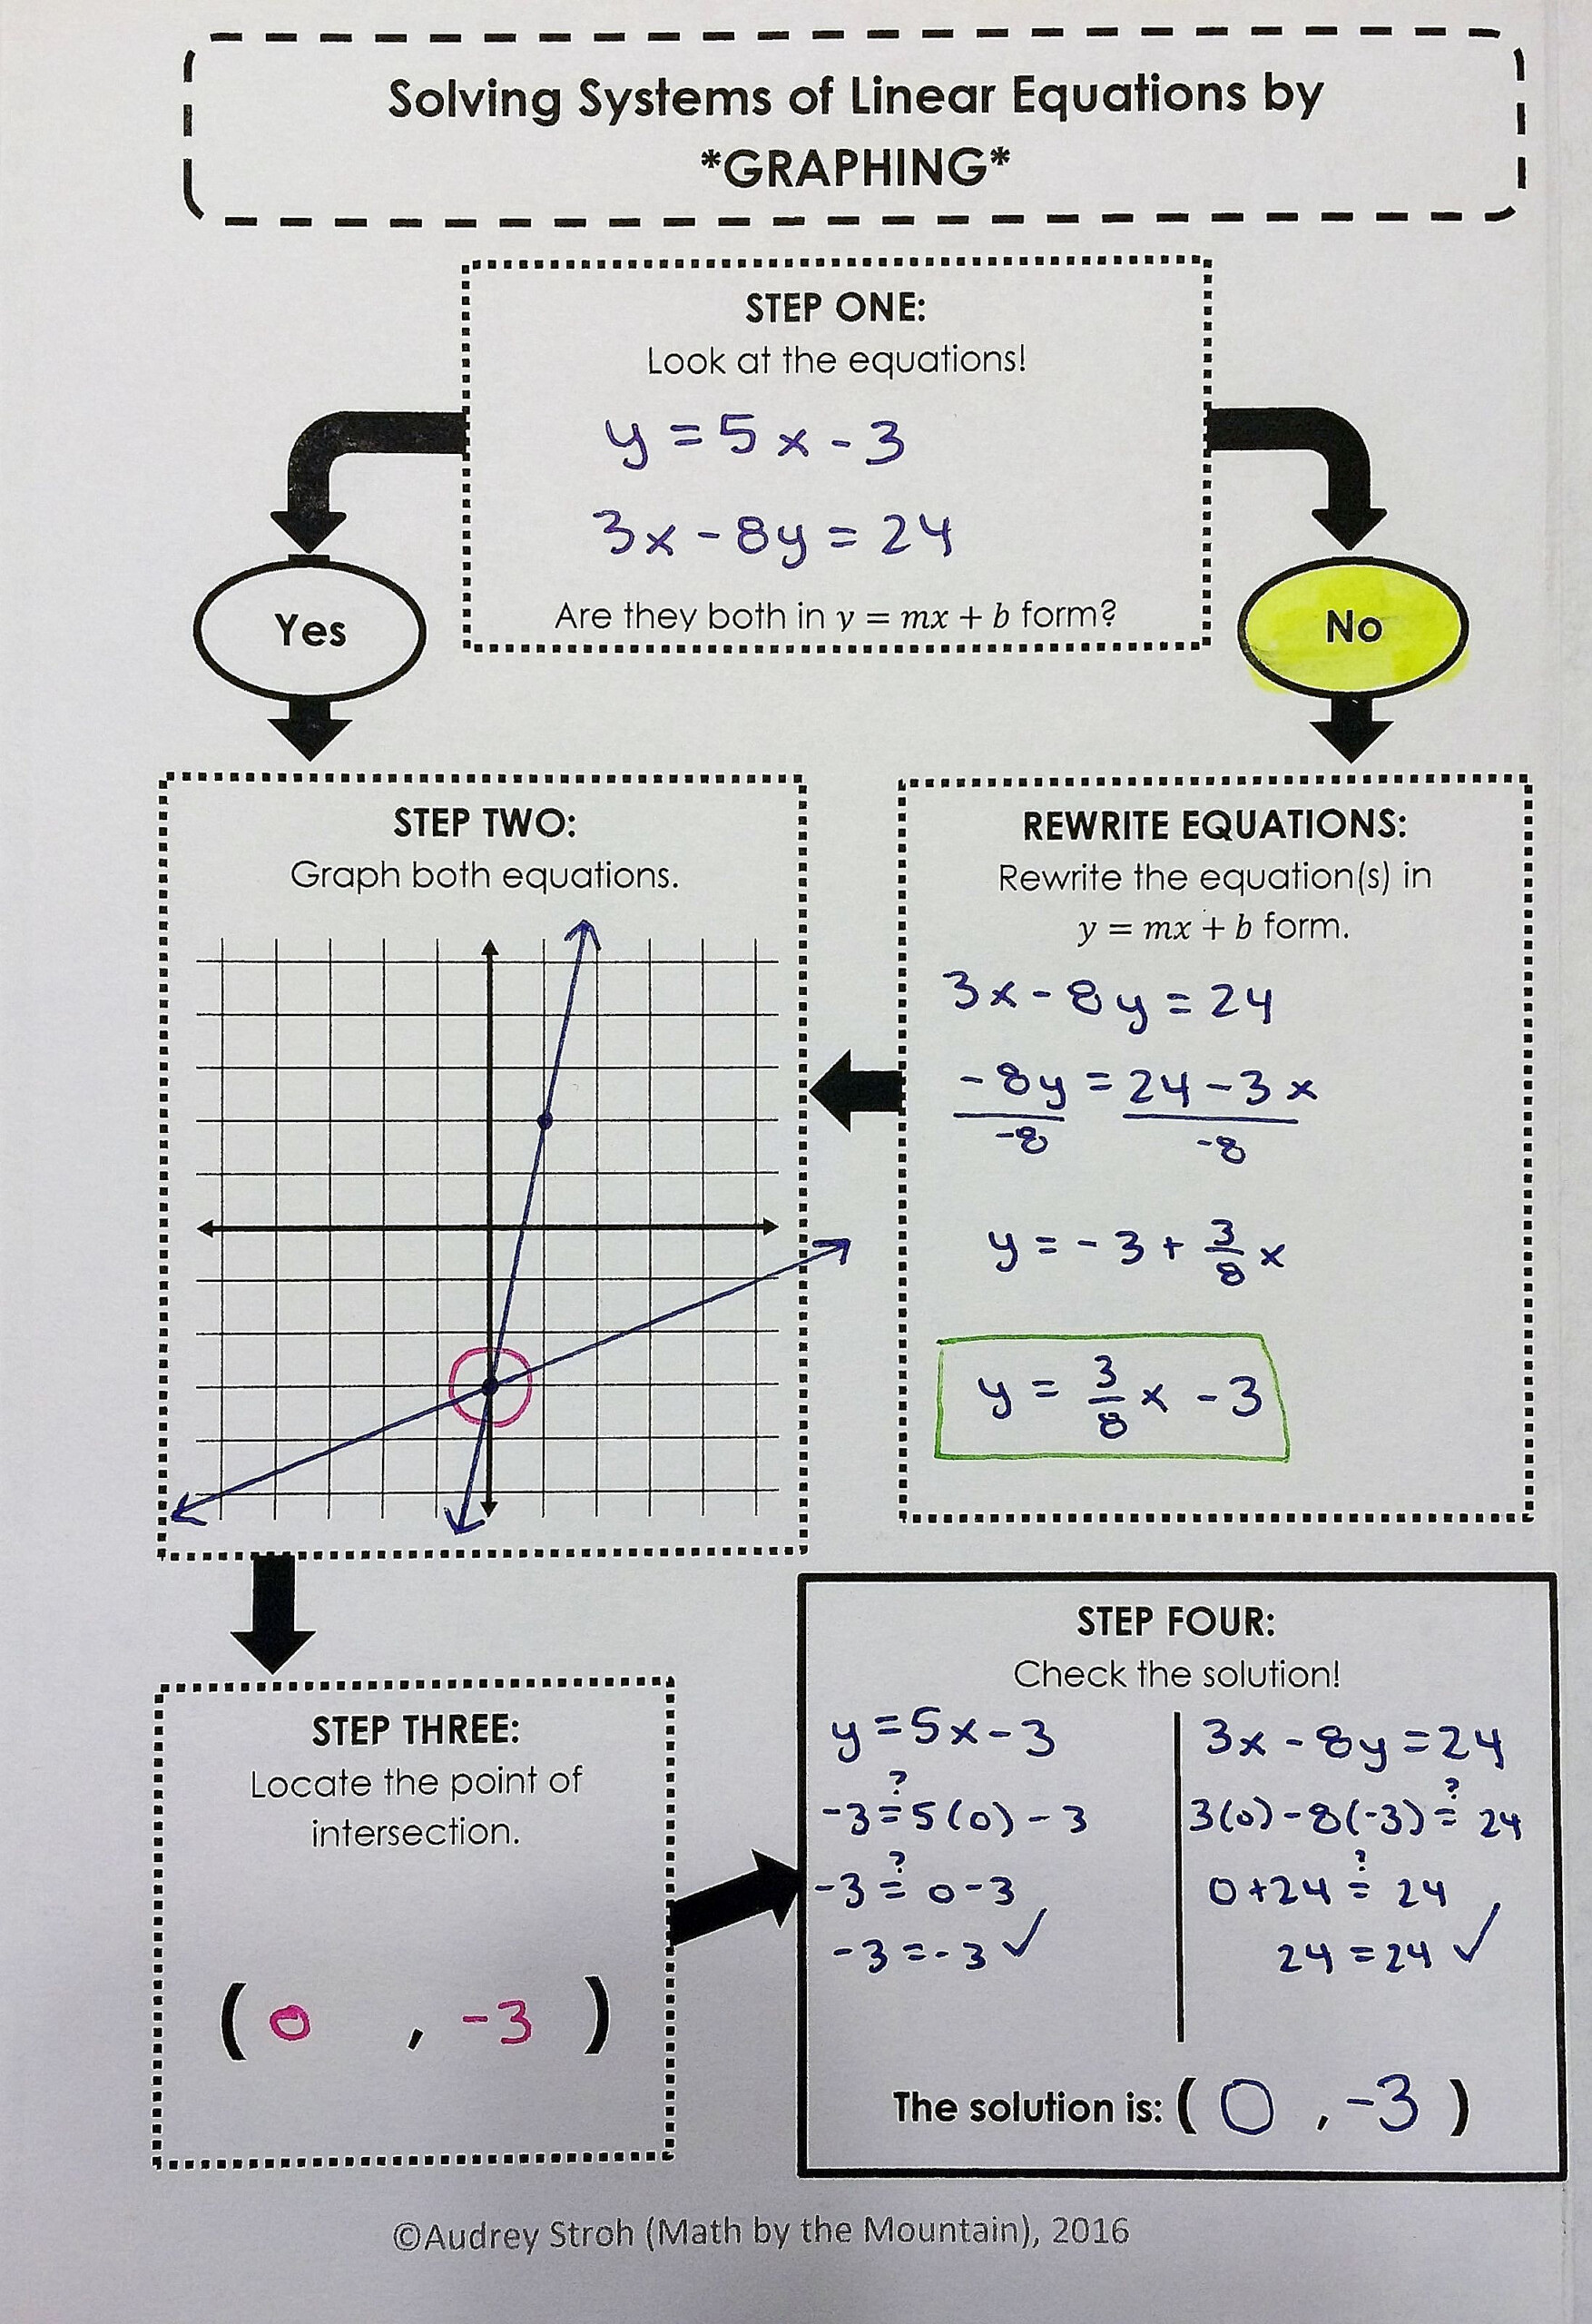 Solving Systems of Linear Equations by
*GRAPHING*
STEP ONE:
Look at the equations!
y = 5x - 3
3x - 8y = 24
Are they both in y = mx + b form?
Yes
No
STEP TWO:
Graph both equations.
REWRITE EQUATIONS:
Rewrite the equation(s) in
y = mx + b form.
3x - 8y = 24
-8y = 24 - 3x
-8 -8
y = -3 + 3/8 x
y = 3/8 x - 3
STEP THREE:
Locate the point of
intersection.
( 0 , -3 )
STEP FOUR:
Check the solution!
y = 5x - 3
?
-3 = 5(0) - 3
?
-3 = 0 - 3
-3 = -3 ✓
3x - 8y = 24
?
3(0) - 8(-3) = 24
?
0 + 24 = 24
24 = 24 ✓
The solution is: ( 0 , -3 )
©Audrey Stroh (Math by the Mountain), 2016